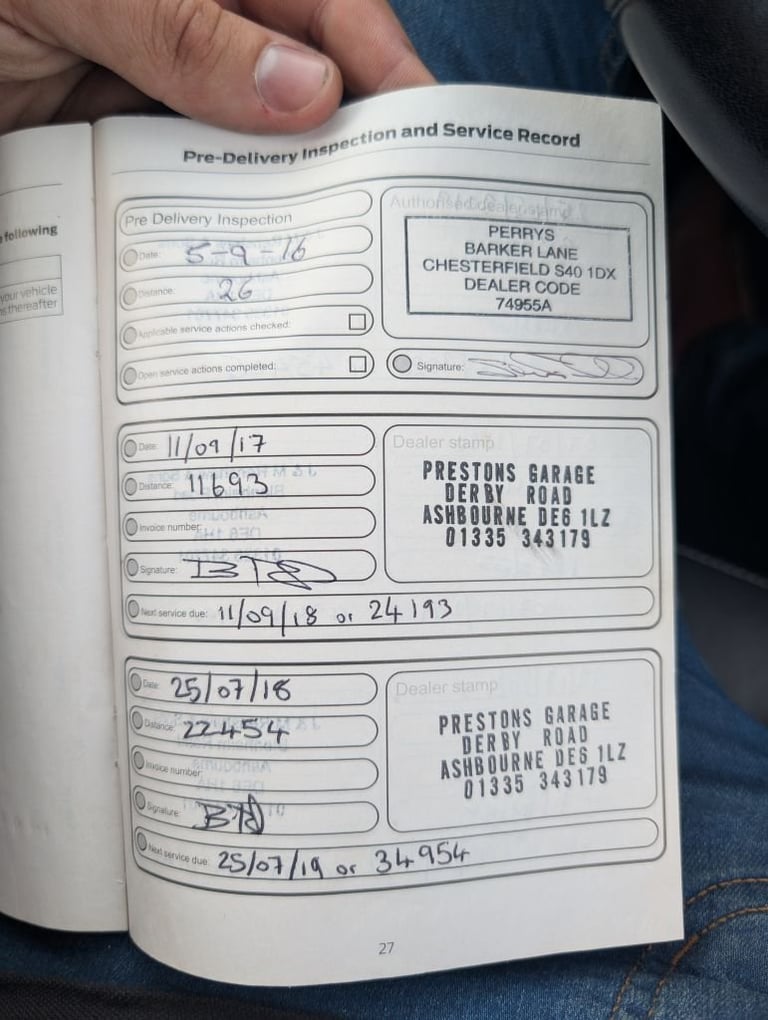 following
your vehicle
s thereafter
Pre-Delivery Inspection and Service Record
Pre Delivery Inspection
Date: 5-9-16
Distance: 26
Applicable service actions checked:
Open service actions completed:
Authorised dealer stamp
PERRYS
BARKER LANE
CHESTERFIELD S40 1DX
DEALER CODE
74955A
Signature:
Date: 11/09/17
Distance: 11693
Invoice number:
Signature:
Next service due: 11/09/18 or 24193
Dealer stamp
PRESTONS GARAGE
DERBY ROAD
ASHBOURNE DE6 1LZ
01335 343179
Date: 25/07/18
Distance: 22454
Invoice number:
Signature:
Next service due: 25/07/19 or 34954
Dealer stamp
PRESTONS GARAGE
DERBY ROAD
ASHBOURNE DE6 1LZ
01335 343179
27